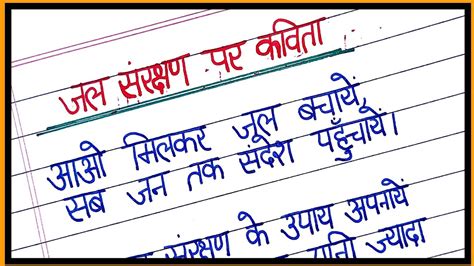 जल संरक्षण पर कविता
आओ मिलकर जूल बचायें,
सब जन तक संदेश पहुँचायें।
संरक्षण के उपाय अपनायें
ज्यादा